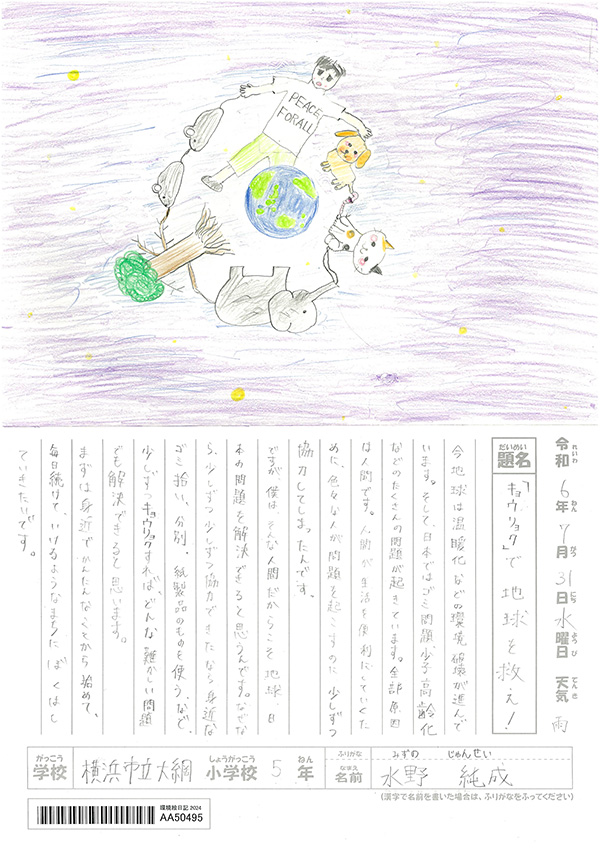 PEACE
FORALL
令和 6年 7月 31日 水曜日 天気 雨
れいわ ねん がつ にち ようび てんき
だいめい
題名
「キョウリョク」で地球を救え！
今地球は温暖化などの環境破壊が進んで
います。そして、日本ではゴミ問題、少子高齢化
などのたくさんの問題が起きています。全部原因
は人間です。人間が生活を便利にしていくた
めに、色々な人が問題を起こすのに少しずつ
協力してしまったんです。
ですが僕は、そんな人間だからこそ地球、日
本の問題を解決できると思うんです。なぜな
ら、少しずつ少しずつ協力できたなら身近な
ゴミ拾い、分別、紙製品のものを使う、など、
少しずつキョウリョクすれば、どんな難かしい問題
でも解決できると思います。
まずは身近でかんたんなことから始めて、
毎日続けて、いけるようなまちにぼくはし
ていきたいです。
がっこう
学校
横浜市立大綱
しょうがっこう
小学校
5
ねん
年
ふりがな
みずの じゅんせい
なまえ
名前
水野 純成
(漢字で名前を書いた場合は、ふりがなをふってください)
環境絵日記 2024
AA50495